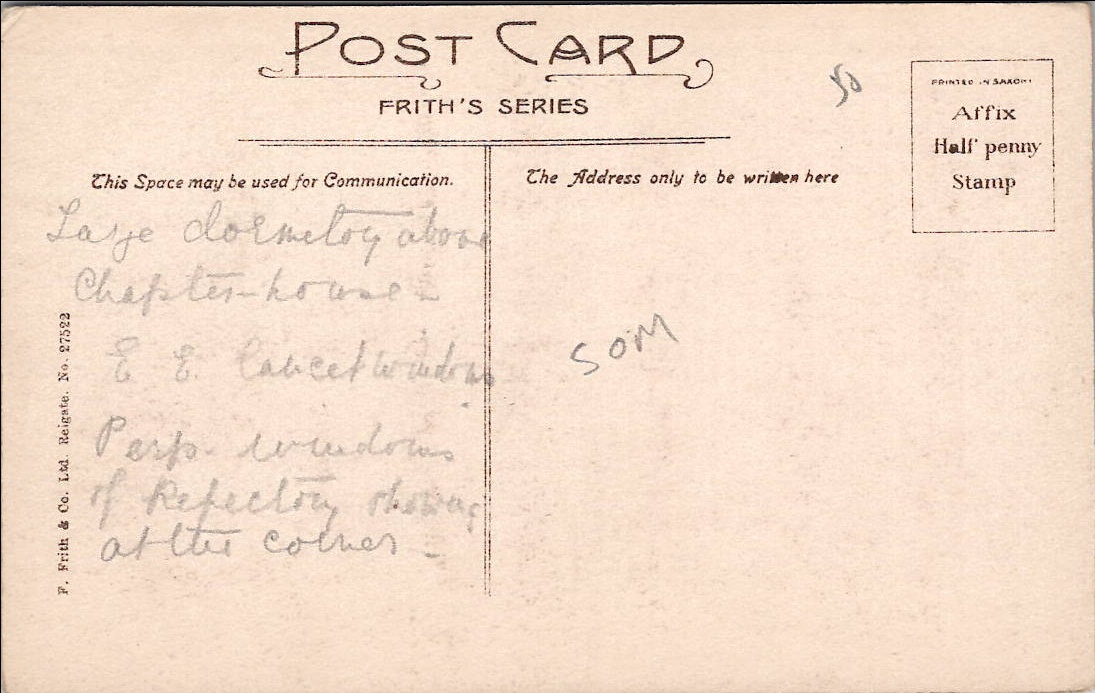 POST CARD
FRITH'S SERIES
50
PRINTED IN SAXONY
Affix
Half penny
Stamp
This Space may be used for Communication.
The Address only to be written here
Large dormitory above
Chapter-house -
E E. lancet windows
Perp. windows
of Refectory showing
at the corner -
SOM
F. Frith & Co. Ltd. Reigate. No. 27522